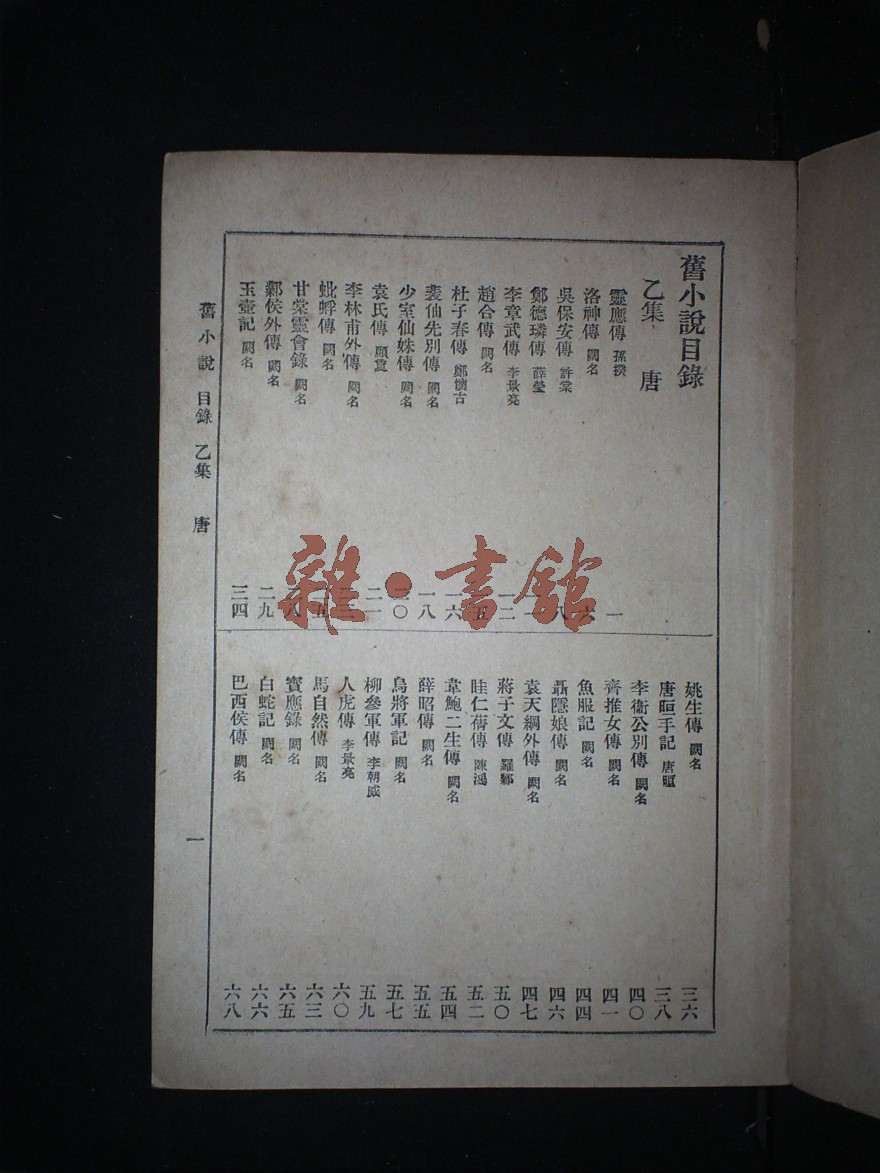 舊小說目錄
乙集 唐
靈應傳 孫揆 一
洛神傳 闕名 六
吳保安傳 許棠 八
鄭德璘傳 薛瑩
李章武傳 李景亮 一二
趙合傳 闕名 一五
杜子春傳 鄭懷古 一六
裴仙先別傳 闕名 一八
少室仙姝傳 闕名 二〇
袁氏傳 顧敻 二一
李林甫外傳 闕名
蚍蜉傳 闕名 二五
甘棠靈會錄 闕名 二八
鄴侯外傳 闕名 二九
玉壺記 闕名 三四
姚生傳 闕名 三六
唐晅手記 唐晅 三八
李衞公別傳 闕名 四〇
齊推女傳 闕名 四一
魚服記 闕名 四四
聶隱娘傳 闕名 四六
袁天綱外傳 闕名 四七
蔣子文傳 羅鄴 五〇
眭仁蒨傳 陳鴻 五二
韋鮑二生傳 闕名 五四
薛昭傳 闕名 五五
烏將軍記 闕名 五七
柳參軍傳 李朝威 五九
人虎傳 李景亮 六〇
馬自然傳 闕名 六三
寶應錄 闕名 六五
白蛇記 闕名 六六
巴西侯傳 闕名 六八
舊小說 目錄 乙集 唐 一
雜·書館